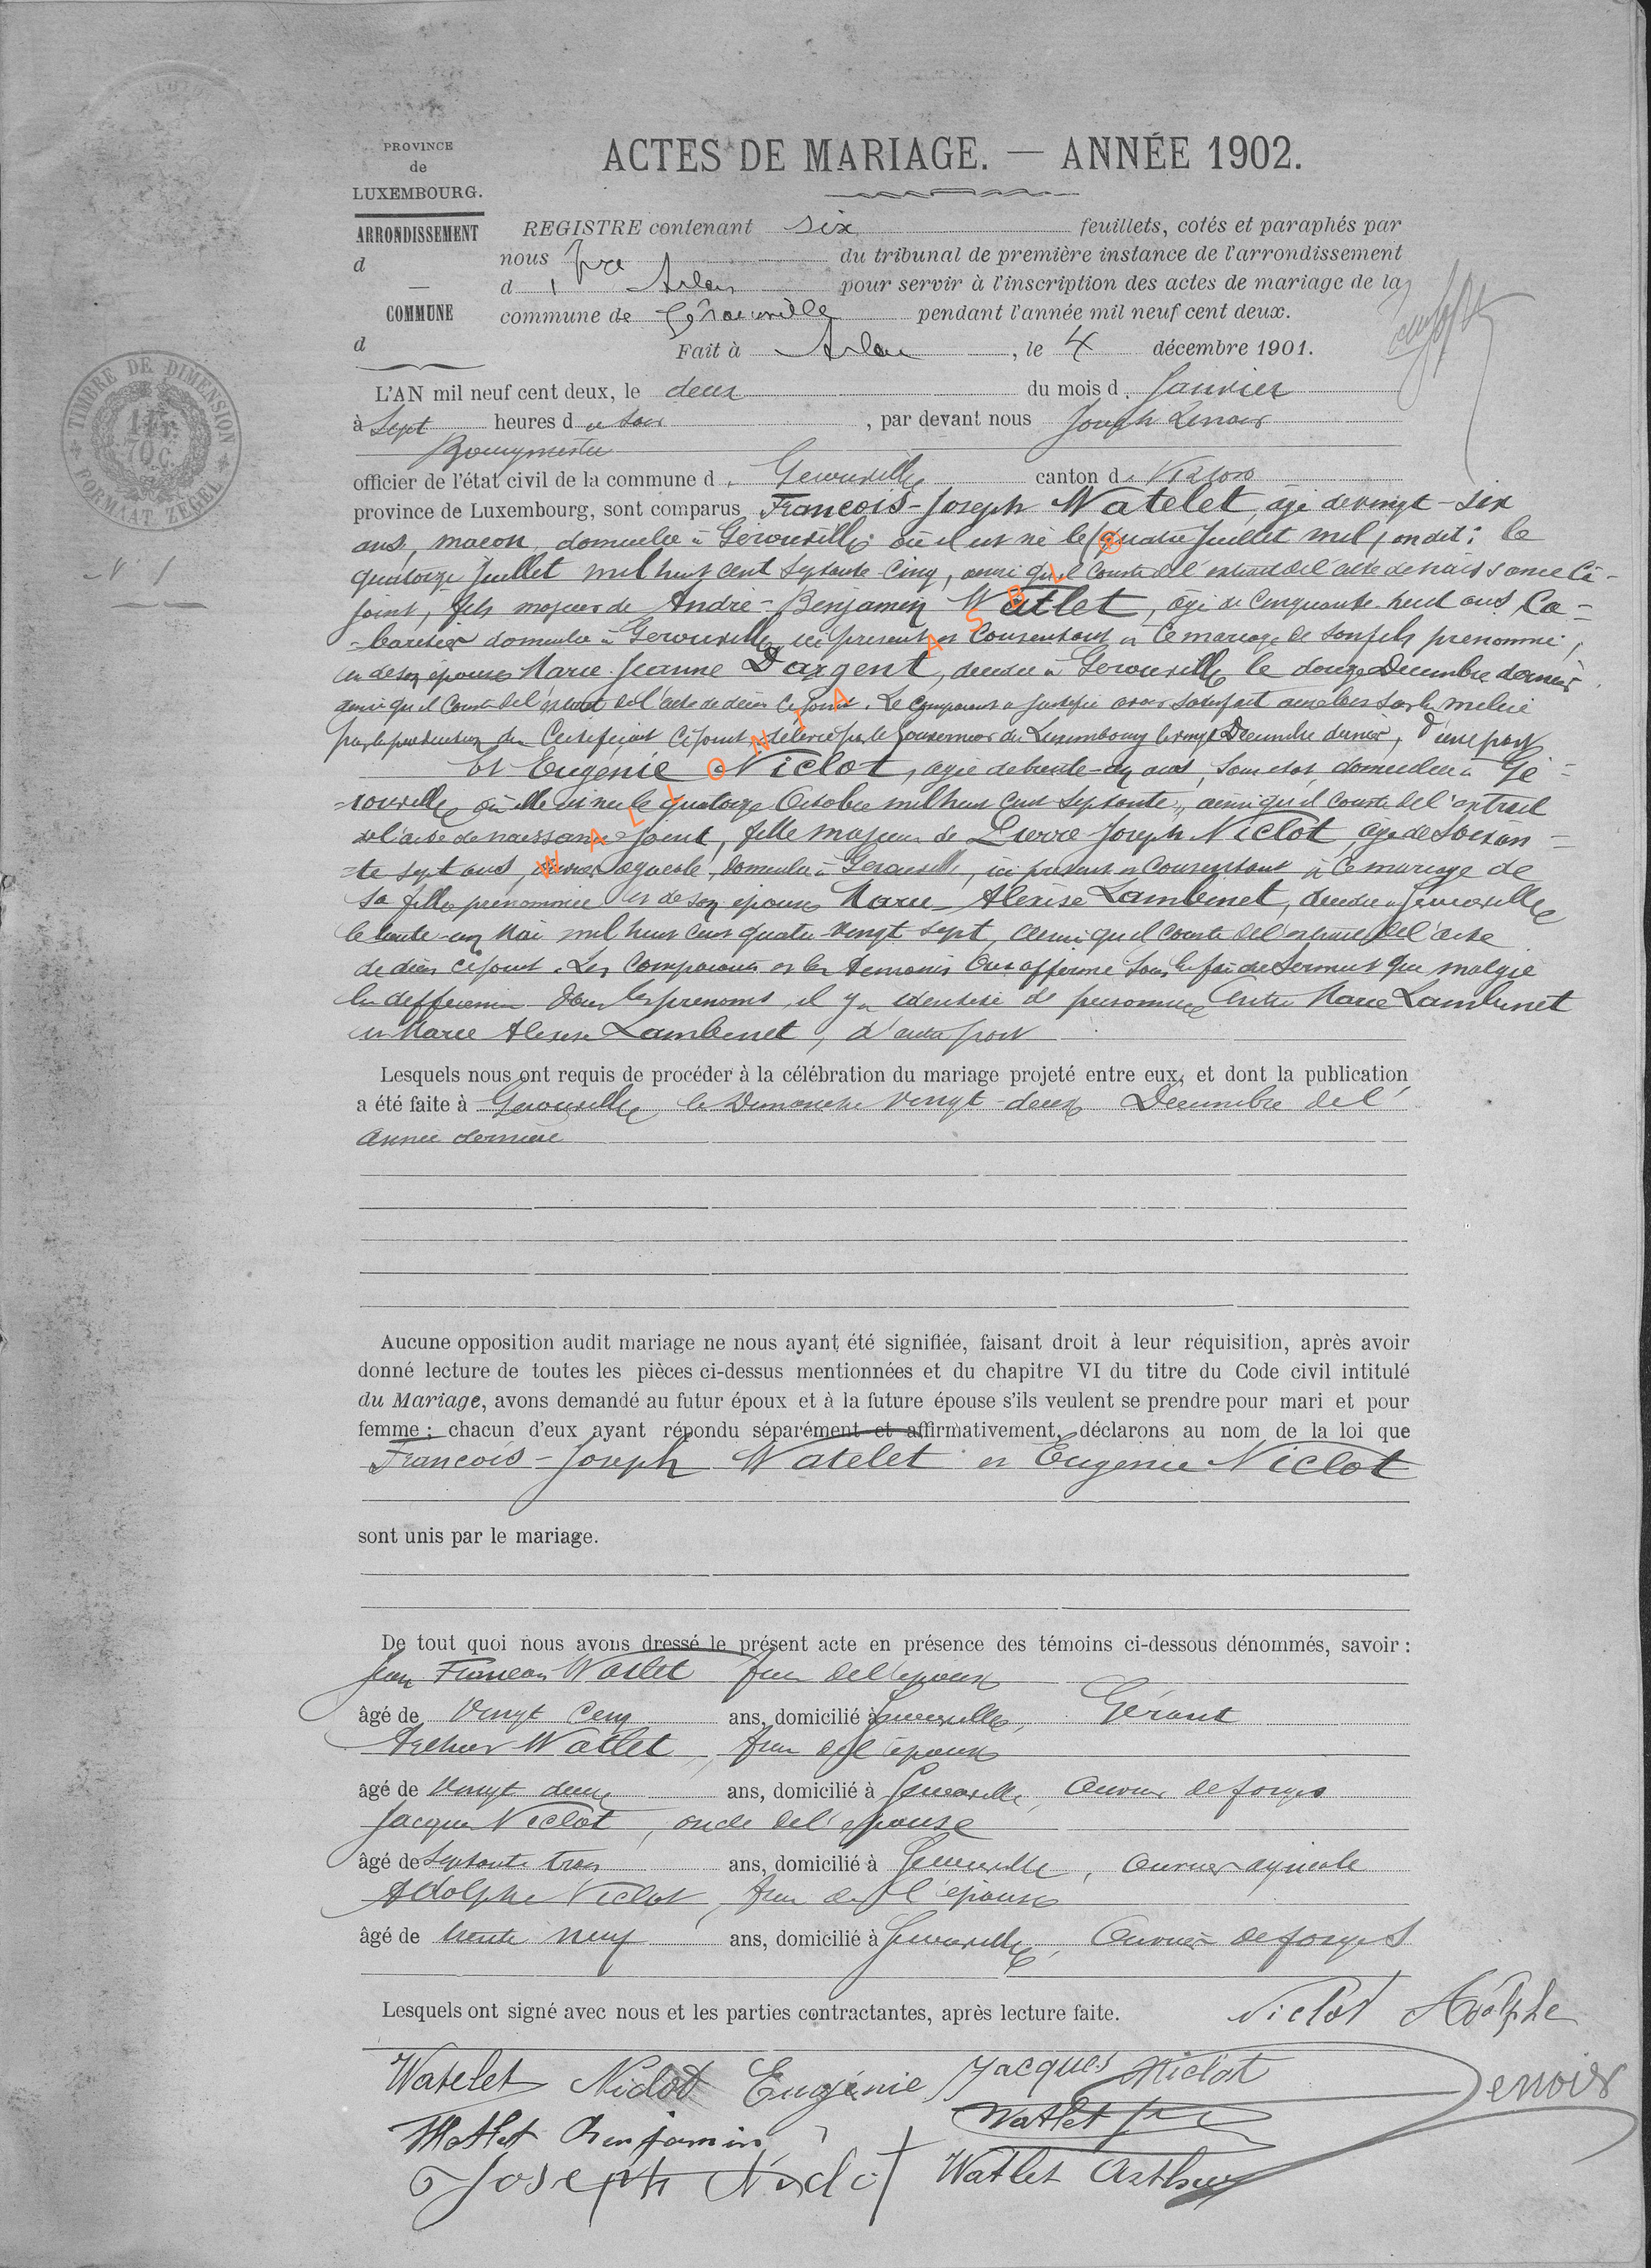 PROVINCE
de
LUXEMBOURG.
ARRONDISSEMENT
d
COMMUNE
d
TIMBRE DE DIMENSION
1 Fr.
70 C.
FORMAAT ZEGEL
N° 1
ACTES DE MARIAGE. — ANNÉE 1902.
REGISTRE contenant six feuillets, cotés et paraphés par
nous du tribunal de première instance de l'arrondissement
d Arlon pour servir à l'inscription des actes de mariage de la
commune de Gérouville pendant l'année mil neuf cent deux.
Fait à Arlon, le 4 décembre 1901.
L'AN mil neuf cent deux, le deux du mois d. Janvier
à Sept heures du soir, par devant nous Joseph Lenoir
Bourgmestre
officier de l'état civil de la commune d. Gerouville canton d. Virton
province de Luxembourg, sont comparus François-Joseph Watelet, âgé de vingt-six
ans, maçon, domicilié à Gerouville où il est né le quatre Juillet mil, on dit: le
quatorze Juillet mil huit cent septante-cinq, ainsi qu'il conste de l'extrait de l'acte de naissance ci-
joint, fils majeur de André-Benjamin Watlet, âgé de cinquante-huit ans, Ca-
-baretier domicilié à Gerouville, ici présent et consentant à ce mariage de son fils prénommé,
et de son épouse Marie Jeanne Dargent, décédée à Gerouville le douze Decembre dernier
ainsi qu'il conste de l'extrait de l'acte de décès ci joint. Le comparant a justifié avoir satisfait aux lois sur la milice
par la production du Certificat ci joint délivré par le Gouverneur du Luxembourg le vingt Decembre dernier, d'une part
Et Eugénie Niclot, agée de trente-un ans, sans état domiciliée à Gé-
=rouville où elle est née le quatorze Octobre mil huit cent septante, ainsi qu'il conste de l'extrait
de l'acte de naissance joint, fille majeure de Pierre-Joseph Niclot, âgé de soixan-
=te sept ans, ouvrier agricole, domicilié à Gerouville, ici présent et consentant à ce mariage de
sa fille prénommée et de son épouse Marie-Alexise Lambinet, décédée à Gerouville
le trente-un Mai mil huit cent quatre-vingt sept, ainsi qu'il conste de l'extrait de l'acte
de décès ci joint. Les comparants et les témoins ont affirmé sous la foi du serment que malgré
la différence dans les prénoms, il y a identité de personnes entre Marie Lambinet
et Marie Alexise Lambinet, d'autre part
Lesquels nous ont requis de procéder à la célébration du mariage projeté entre eux, et dont la publication
a été faite à Gerouville, le Dimanche vingt-deux Decembre de l'
année dernière
Aucune opposition audit mariage ne nous ayant été signifiée, faisant droit à leur réquisition, après avoir
donné lecture de toutes les pièces ci-dessus mentionnées et du chapitre VI du titre du Code civil intitulé
du Mariage, avons demandé au futur époux et à la future épouse s'ils veulent se prendre pour mari et pour
femme : chacun d'eux ayant répondu séparément et affirmativement, déclarons au nom de la loi que
François-Joseph Watelet et Eugénie Niclot
sont unis par le mariage.
De tout quoi nous avons dressé le présent acte en présence des témoins ci-dessous dénommés, savoir :
Jean François Watlet frère de l'époux
âgé de vingt cinq ans, domicilié à Gerouville, Gérant
Arthur Watlet, frère de l'époux
âgé de vingt deux ans, domicilié à Gerouville, Ouvrier de forges
Jacques Niclot, oncle de l'épouse
âgé de septante trois ans, domicilié à Gerouville, Ouvrier agricole
Adolphe Niclot, frère de l'épouse
âgé de trente neuf ans, domicilié à Gerouville, Ouvrier de forges
Lesquels ont signé avec nous et les parties contractantes, après lecture faite.
Niclot Adolphe
Watelet Niclot Eugénie Jacques Niclot Lenoir
Watlet Benjamin Watlet
Joseph Niclot Watlet Arthur
WALLONIA ASBL ©